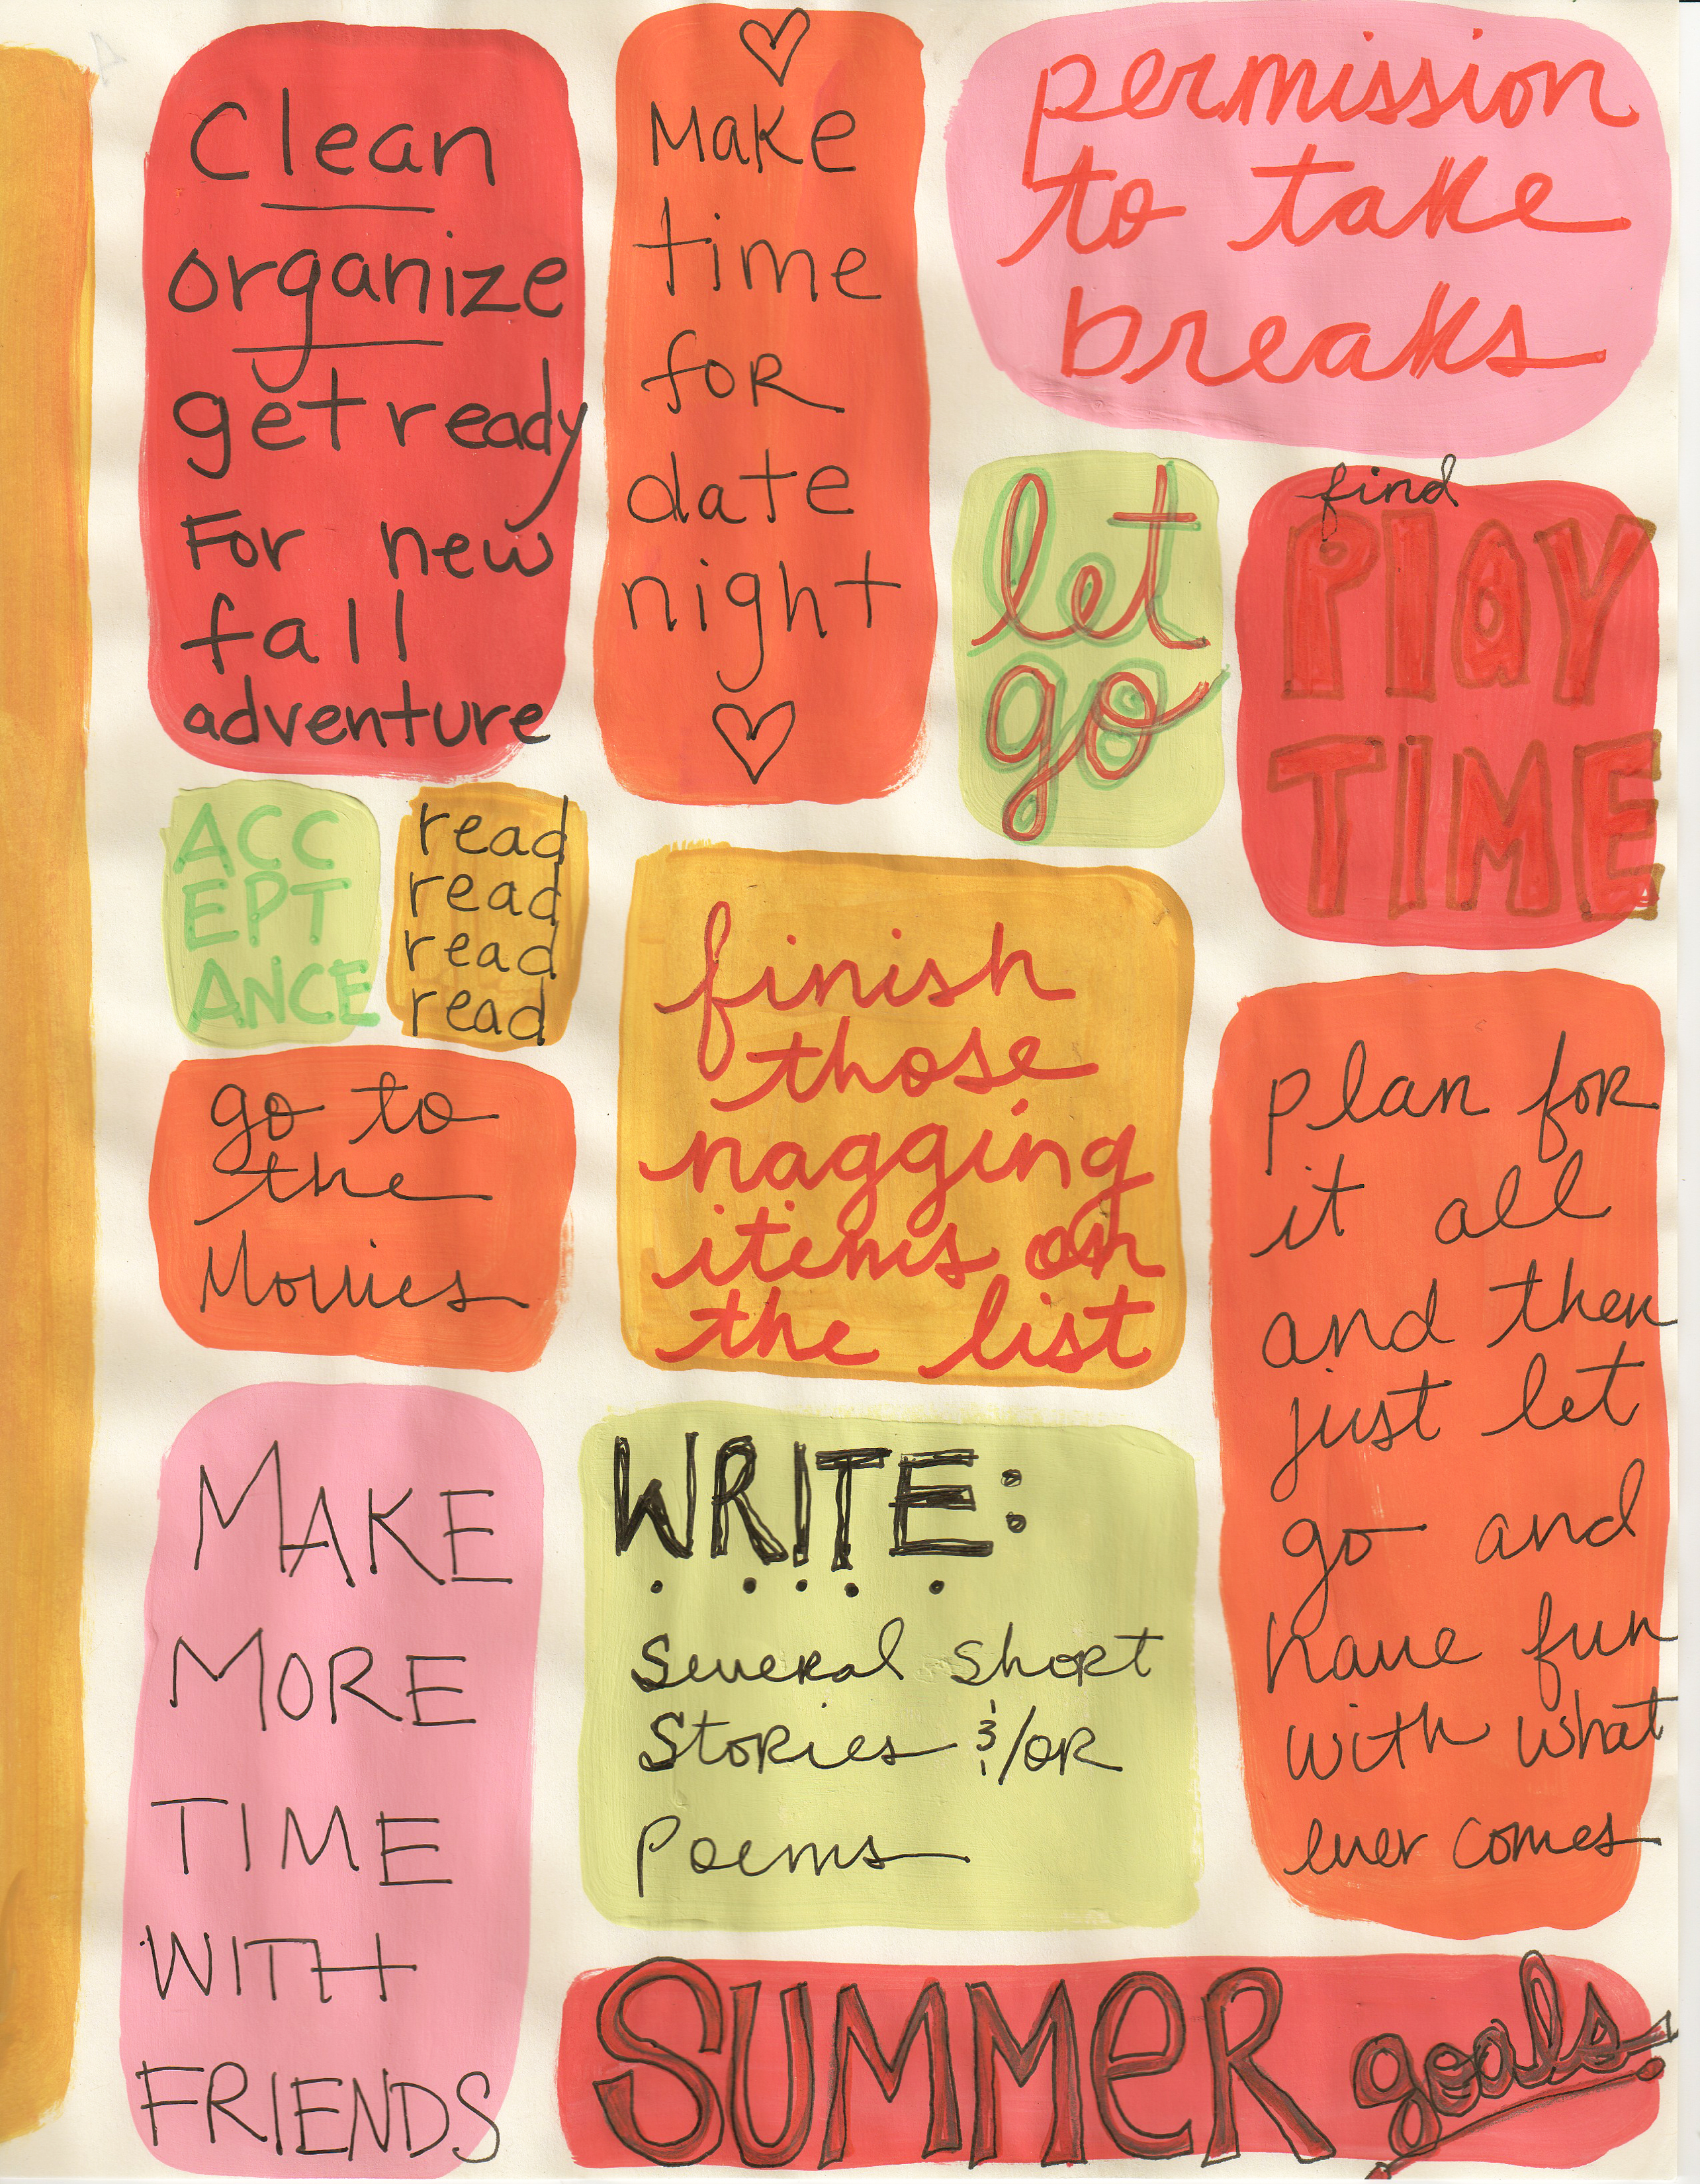 Clean
organize
get ready
For new
fall
adventure
Make
time
for
date
night
permission
to take
breaks
let
go
find
PlaY
TIME
ACC
EPT
ANCE
read
read
read
read
go to
the
Movies
finish
those
nagging
items on
the list
plan for
it all
and then
just let
go and
have fun
with what
ever comes
MAKE
MORE
TIME
WITH
FRIENDS
WRITE:
Several short
Stories &/or
Poems
SUMMeR goals!